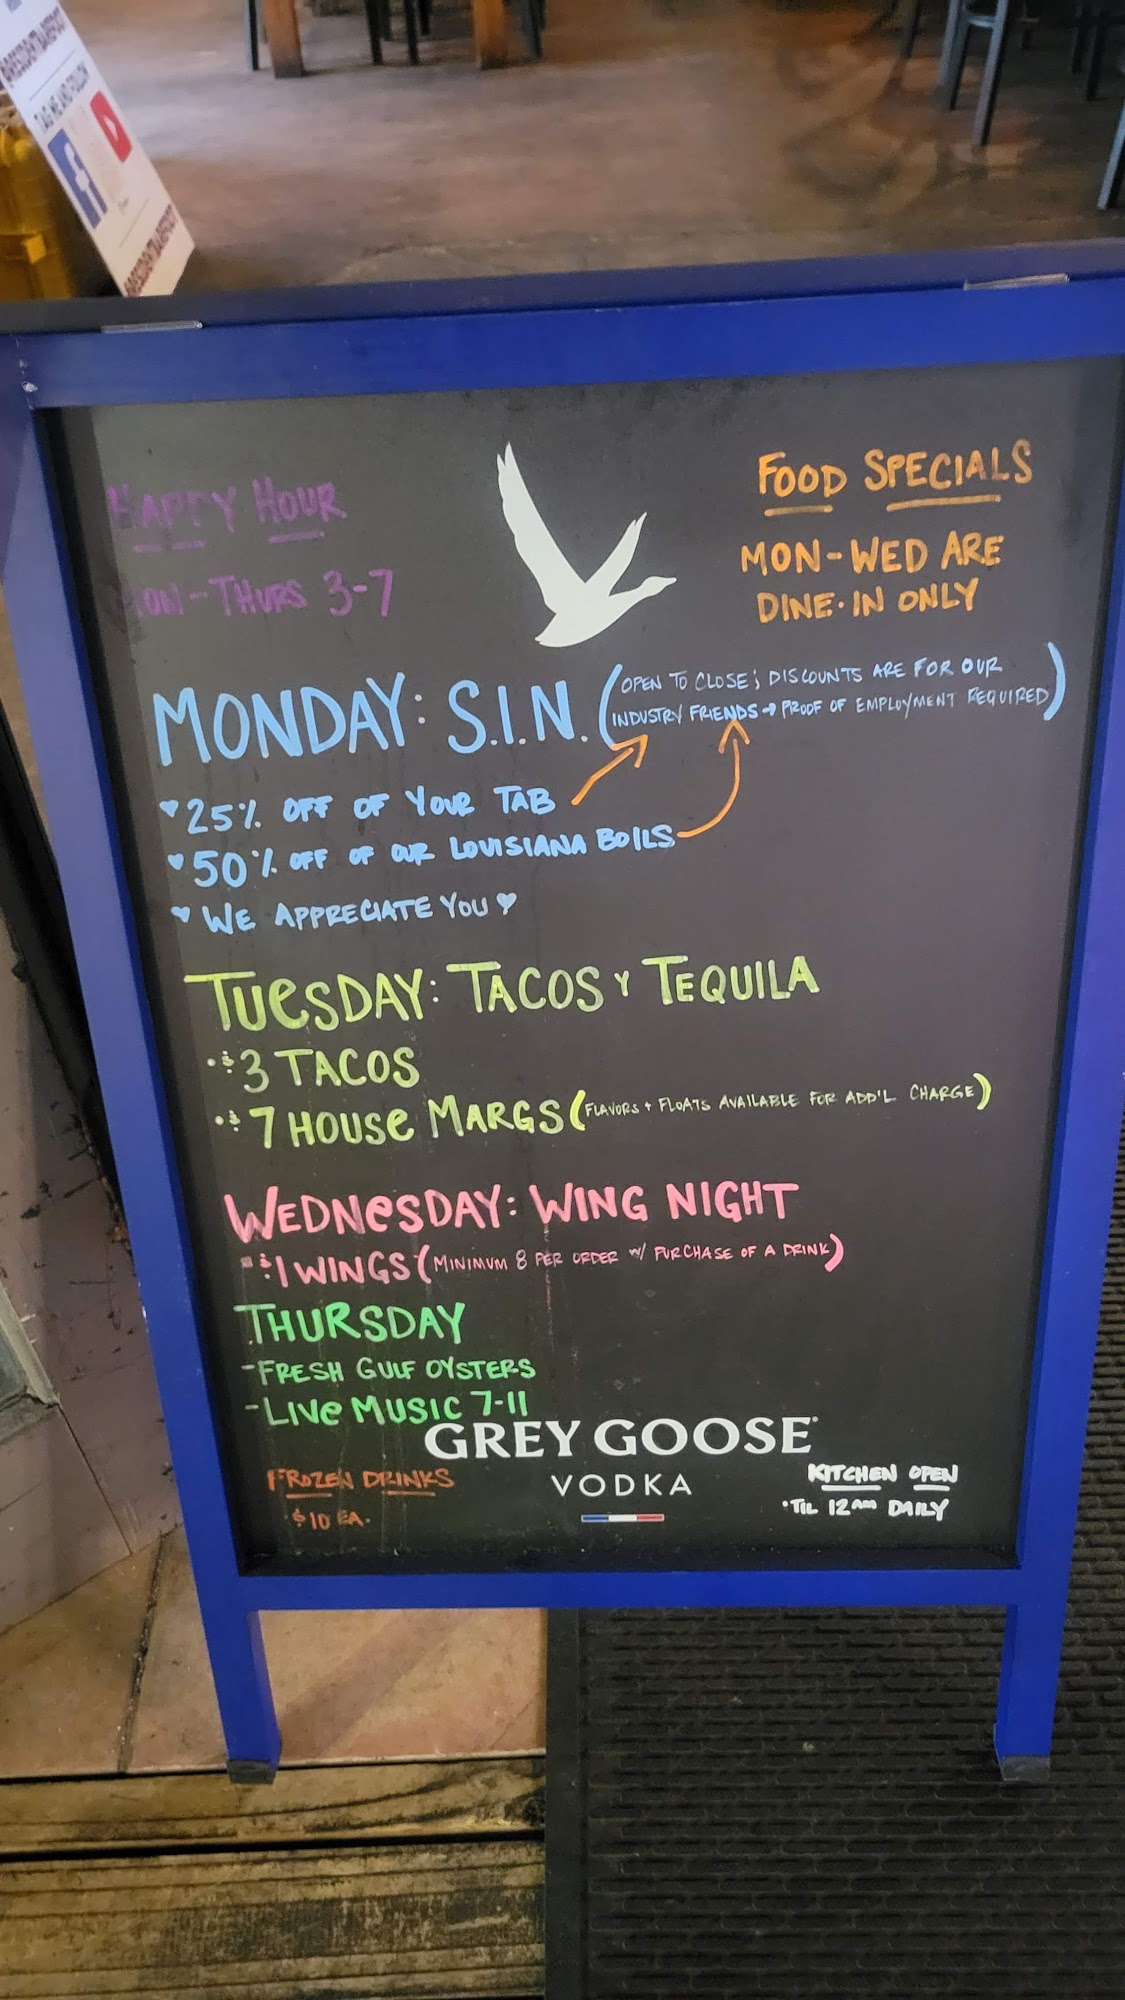 TAG ME AND FOLLOW
HAPPY HOUR
MON-THURS 3-7
FOOD SPECIALS
MON-WED ARE
DINE-IN ONLY
MONDAY: S.I.N. (OPEN TO CLOSE; DISCOUNTS ARE FOR OUR
INDUSTRY FRIENDS → PROOF OF EMPLOYMENT REQUIRED)
♥ 25% OFF OF YOUR TAB
♥ 50% OFF OF OUR LOUISIANA BOILS
♥ WE APPRECIATE YOU ♥
TUESDAY: TACOS Y TEQUILA
• $3 TACOS
• $7 HOUSE MARGS (FLAVORS + FLOATS AVAILABLE FOR ADD'L CHARGE)
WEDNESDAY: WING NIGHT
• $1 WINGS (MINIMUM 8 PER ORDER W/ PURCHASE OF A DRINK)
THURSDAY
- FRESH GULF OYSTERS
- LIVE MUSIC 7-11
GREY GOOSE
VODKA
FROZEN DRINKS
$10 EA.
KITCHEN OPEN
'TIL 12AM DAILY